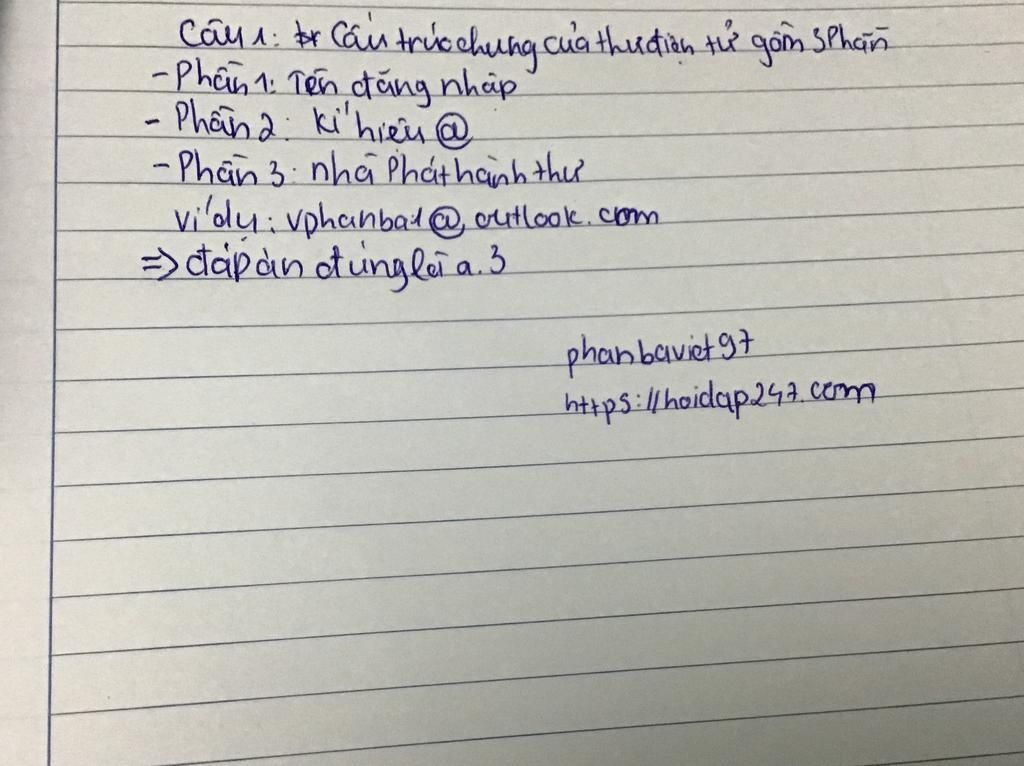 Câu 1: Cấu trúc chung của thư điện tử gồm 3 Phần
- Phần 1: Tên đăng nhập
- Phần 2: kí hiệu @
- Phần 3: nhà Phát hành thư
ví dụ: vphanba1@outlook.com
=> đáp án đúng là a.3
phanbaviet97
https://hoidap247.com